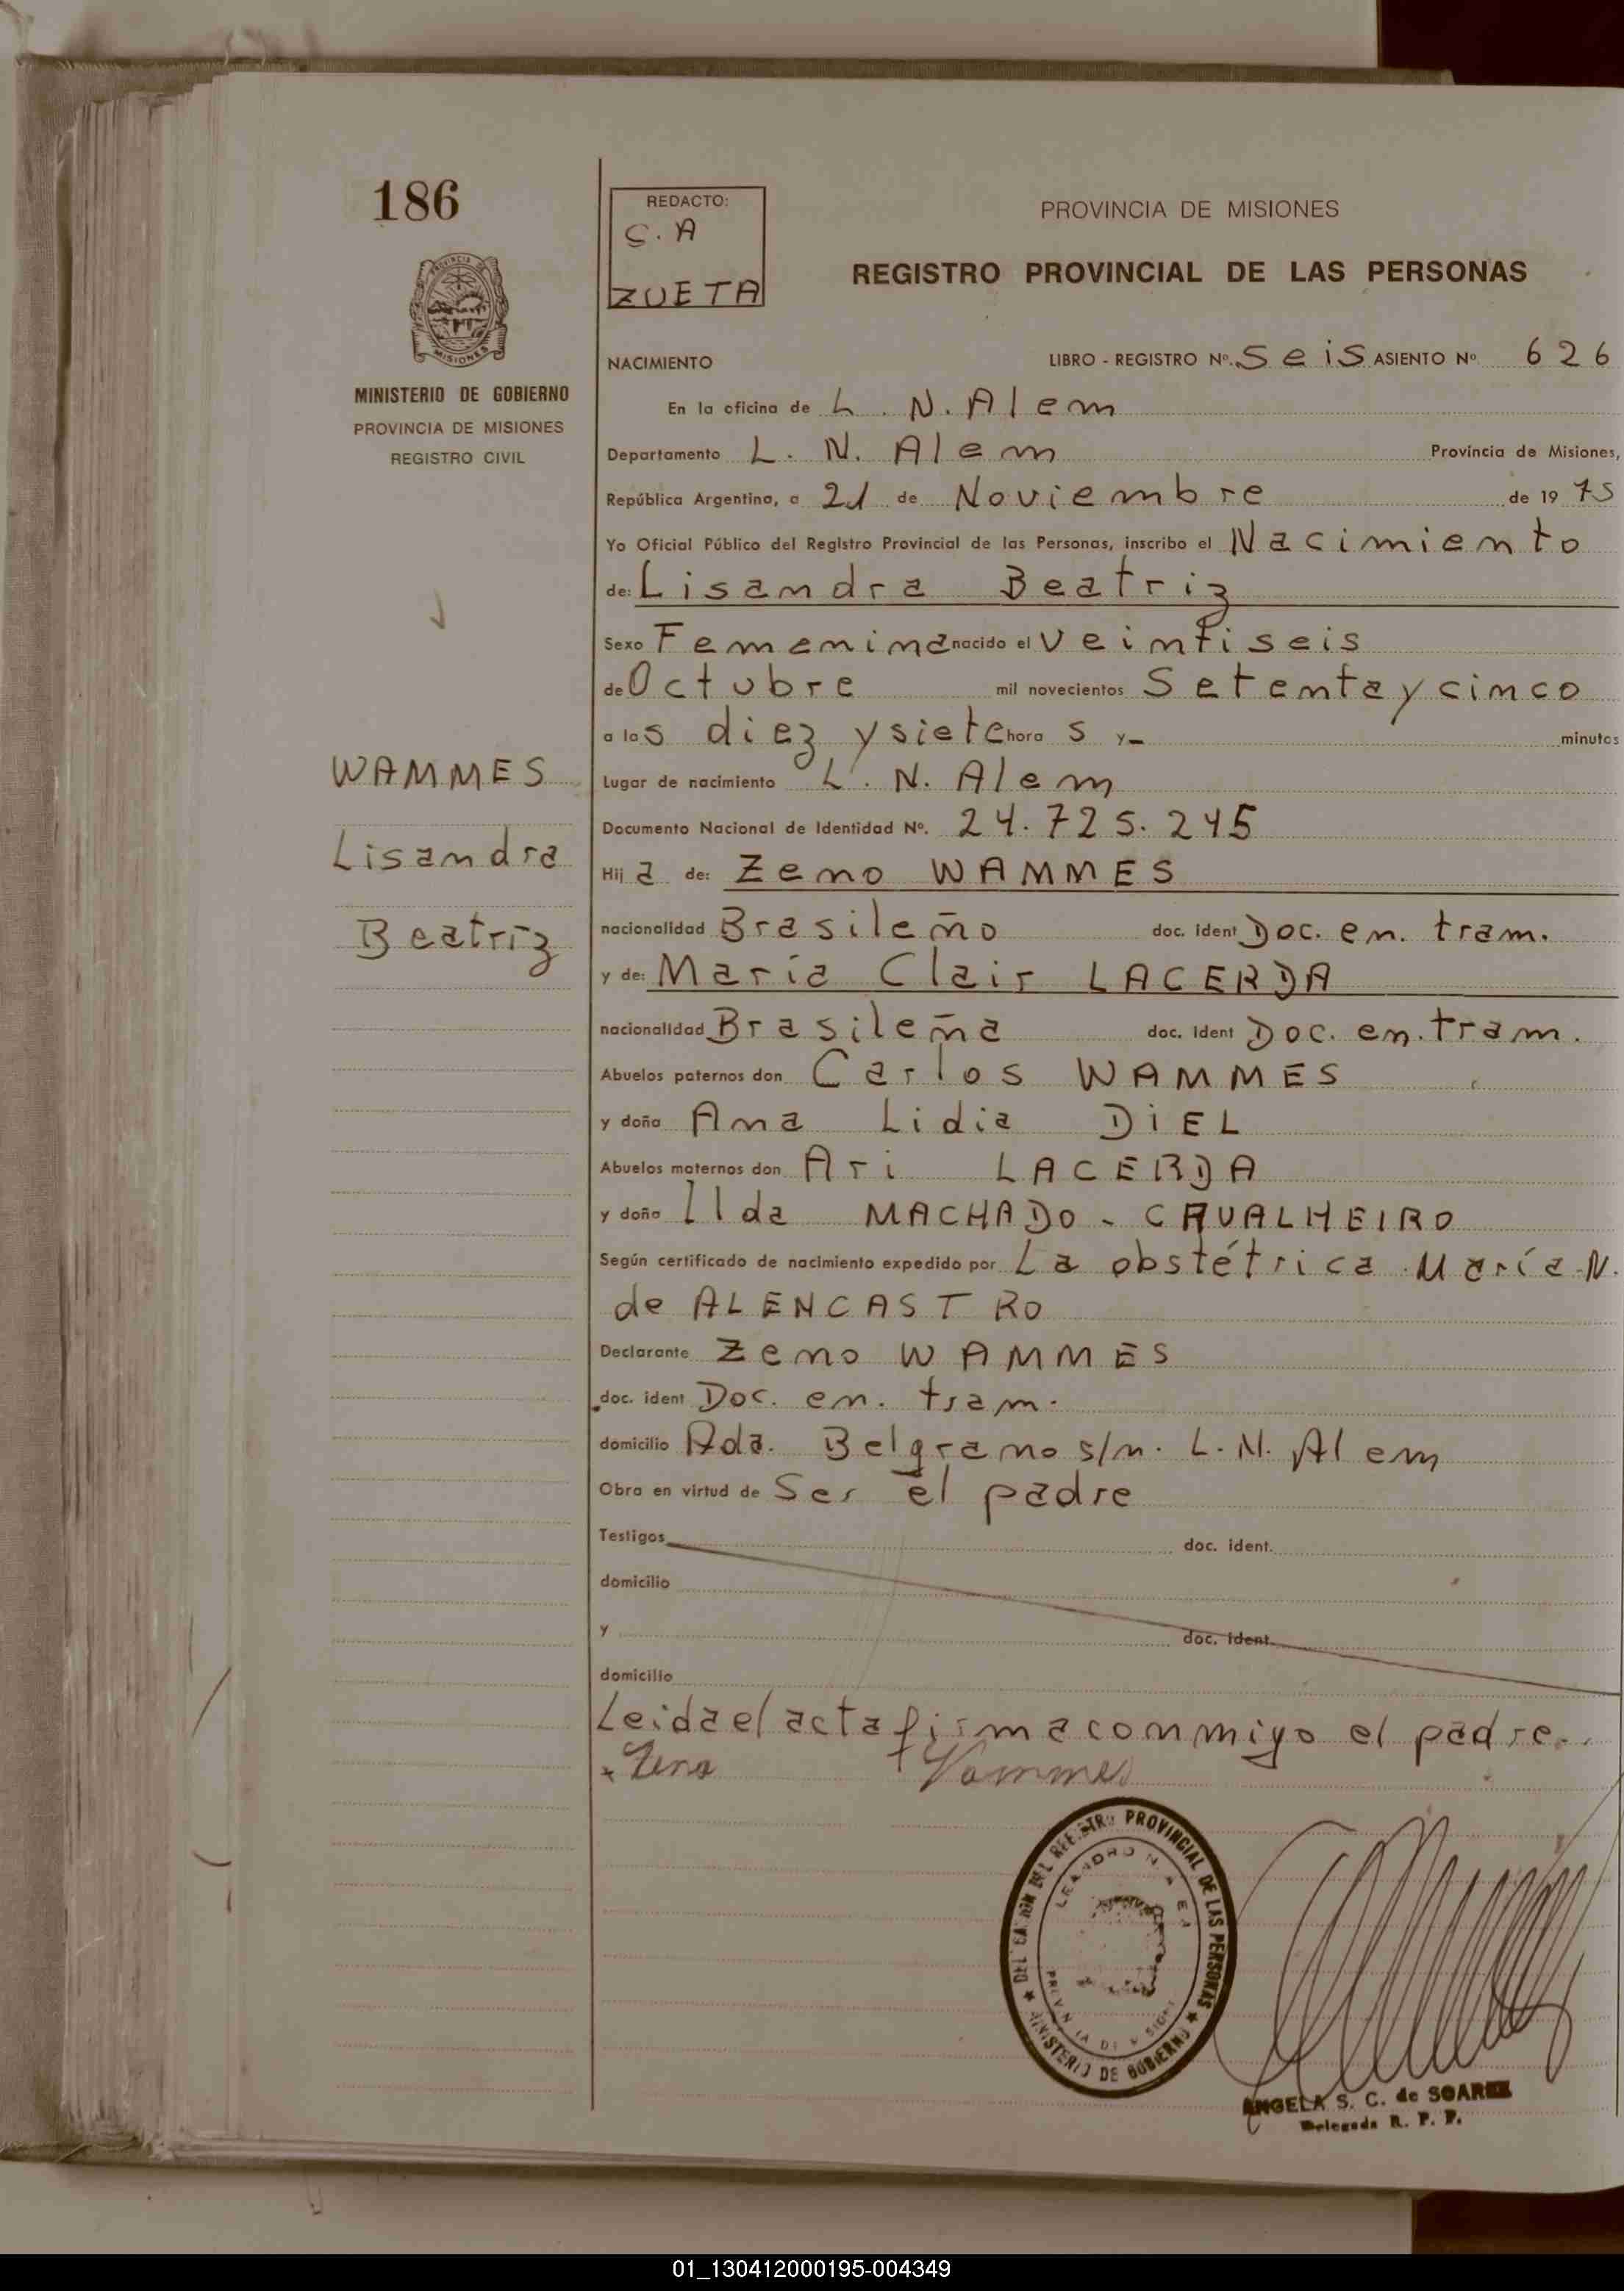 186
REDACTO:
S. A
ZUETA
PROVINCIA DE MISIONES
REGISTRO PROVINCIAL DE LAS PERSONAS
MISIONES
MINISTERIO DE GOBIERNO
PROVINCIA DE MISIONES
REGISTRO CIVIL
NACIMIENTO LIBRO - REGISTRO Nº. Seis ASIENTO Nº 626
En la oficina de L. N. Alem
Departamento L. N. Alem Provincia de Misiones,
República Argentina, a 21 de Noviembre de 19 75
Yo Oficial Público del Registro Provincial de las Personas, inscribo el Nacimiento
de: Lisandra Beatriz
Sexo Femenina nacido el Veintiseis
de Octubre mil novecientos Setenta y cinco
a las diez y siete hora s y - minutos
WAMMES
Lisandra
Beatriz
Lugar de nacimiento L. N. Alem
Documento Nacional de Identidad Nº. 24.725.245
Hij a de: Zeno WAMMES
nacionalidad Brasileño doc. ident Doc. en. tram.
y de: María Clair LACERDA
nacionalidad Brasileña doc. ident Doc. en. tram.
Abuelos paternos don Carlos WAMMES
y doña Ana Lidia DIEL
Abuelos maternos don Ari LACERDA
y doña Ilda MACHADO - CAVALHEIRO
Según certificado de nacimiento expedido por La obstétrica María N.
de ALENCASTRO
Declarante Zeno WAMMES
doc. ident Doc. en. tram.
domicilio Avda. Belgrano s/n. L. N. Alem
Obra en virtud de Ser el padre
Testigos doc. ident.
domicilio
y doc. ident.
domicilio
Leida el acta firma conmigo el padre..
Zeno Wammes
DELEGACION DEL REGISTRO PROVINCIAL DE LAS PERSONAS
LEANDRO N. ALEM
PROVINCIA DE MISIONES
MINISTERIO DE GOBIERNO
ANGELA S. C. de SOAREZ
Delegada R. P. P.
01_130412000195-004349